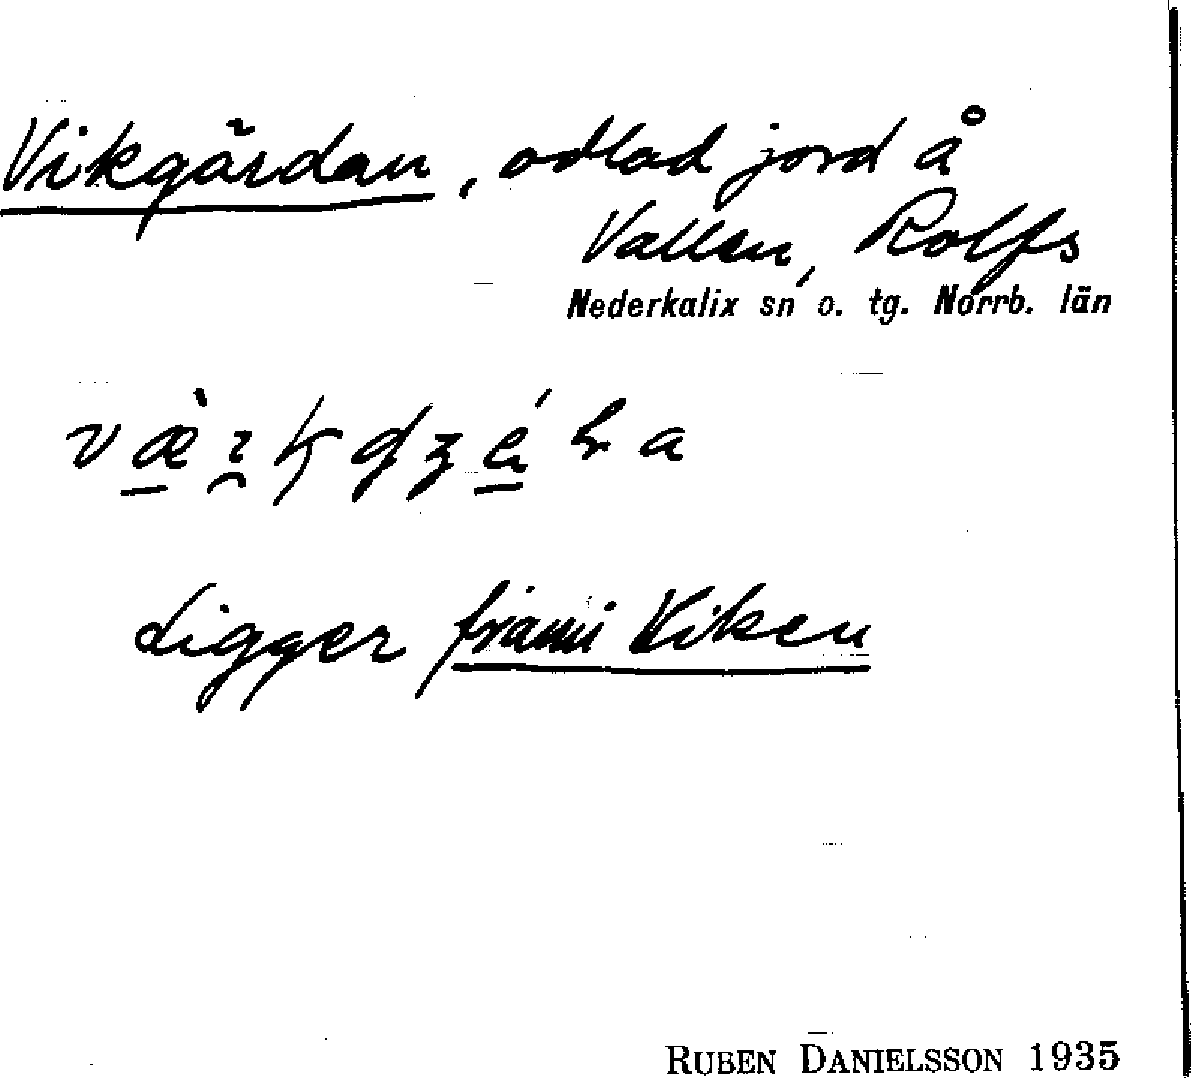 Vikgärdan, odlad jord å
Vallen, Rolfs
Nederkalix sn o. tg. Norrb. län
ligger frami Viken
RUBEN DANIELSSON 1935